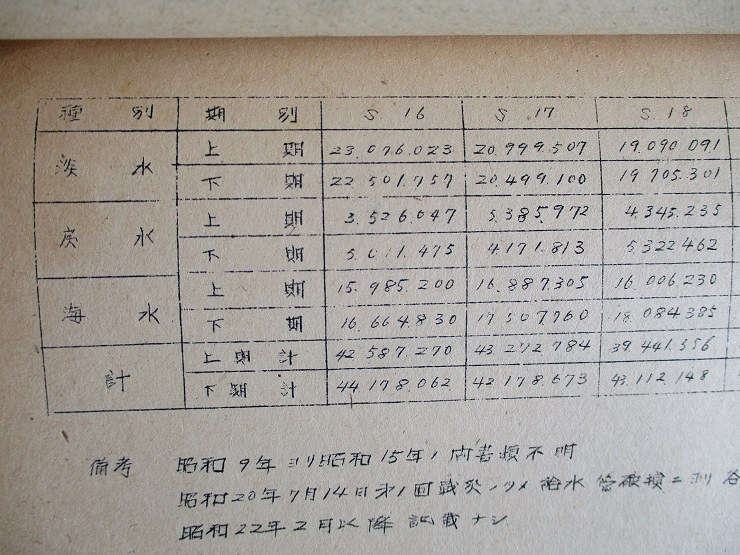 種別 期別 S 16 S. 17 S. 18
淡水 上期 23.076.023 20.999.507 19.090.091
下期 22.501.757 20.499.100 19.705.301
戻水 上期 3.526.047 5.385.972 4.345.235
下期 5.011.475 4.171.813 5.322.462
海水 上期 15.985.200 16.887.305 16.006.230
下期 16.664.830 17.507.760 18.084.385
計 上期計 42.587.270 43.272.784 39.441.556
下期計 44.178.062 42.178.673 43.112.148
備考 昭和9年ヨリ昭和15年ノ 不明
昭和20年7月14日 回戦災ノタメ給水管破損ニヨリ
昭和22年2月以降記載ナシ